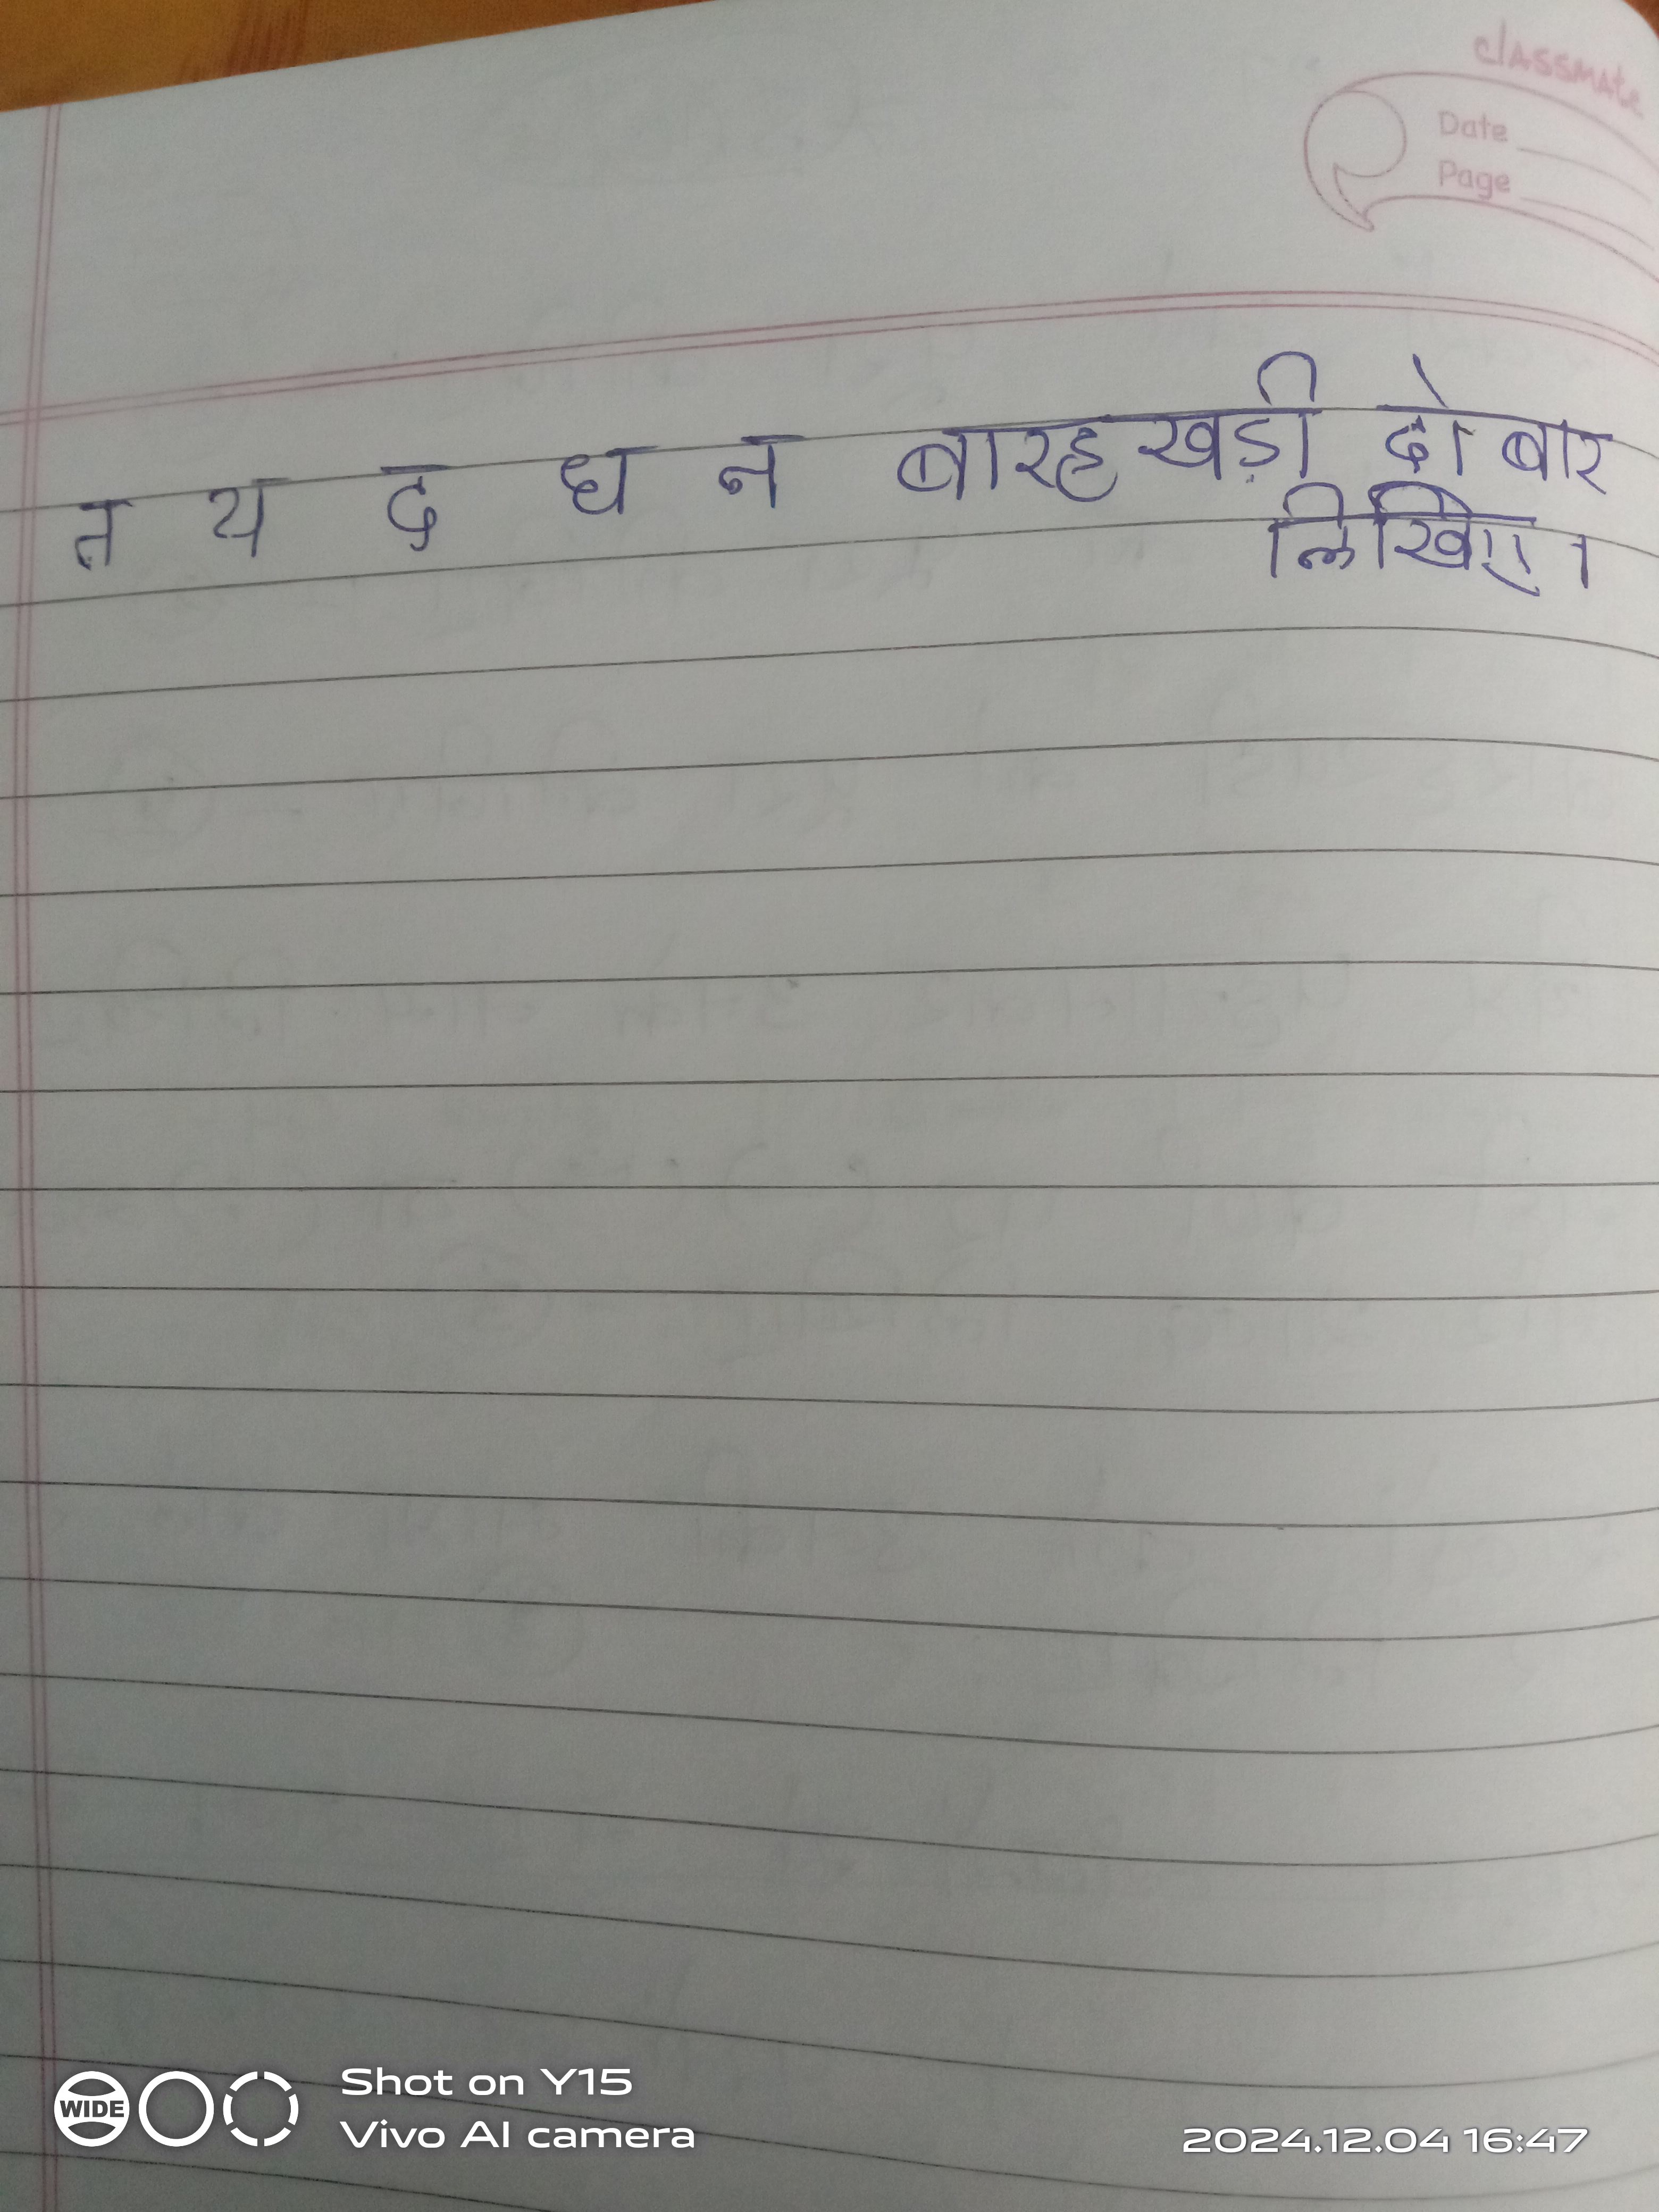 classmate
Date
Page
त य द ध न बारहखड़ी दो बार
लिखिए।
WIDE
Shot on Y15
Vivo AI camera
2024.12.04 16:47